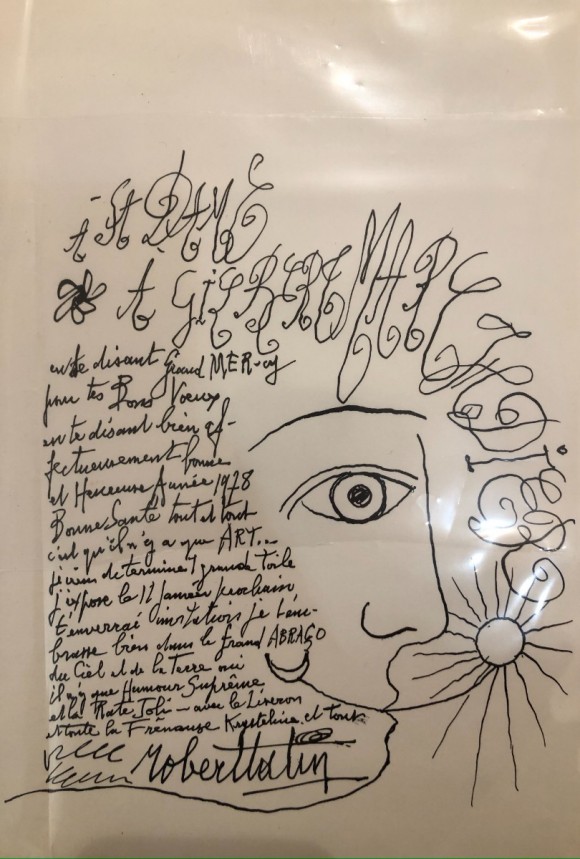 A SA DAME
A GISBERTE MARC
DIER
en te disant grand MER-cy
pour tes Bons Voeux
en te disant bien af-
fectueusement bonne
et Heureuse Année 1978
Bonne Santé tout et tout
c'est qu'il n'y a que ART...
je viens de terminer 1 grande toile
j'expose le 12 Janvier prochain
t'enverrai invitations je t'em-
brasse bien dans le grand ABRAÇO
du Ciel et de la Terre oui
il n'y a que Humour Suprême
et la Route Joli – avec le Liseron
et toute la Frênouse et tout
roberttatin